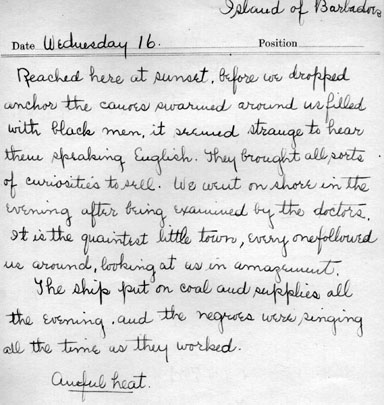 Island of Barbados
Date Wednesday 16. Position
Reached here at sunset, before we dropped
anchor the canoes swarmed around us filled
with black men, it seemed strange to hear
them speaking English. They brought all sorts
of curiosities to sell. We went on shore in the
evening after being examined by the doctors.
It is the quaintest little town, every one followed
us around, looking at us in amazement.
The ship put on coal and supplies all
the evening, and the negroes were singing
all the time as they worked.
Awful heat.